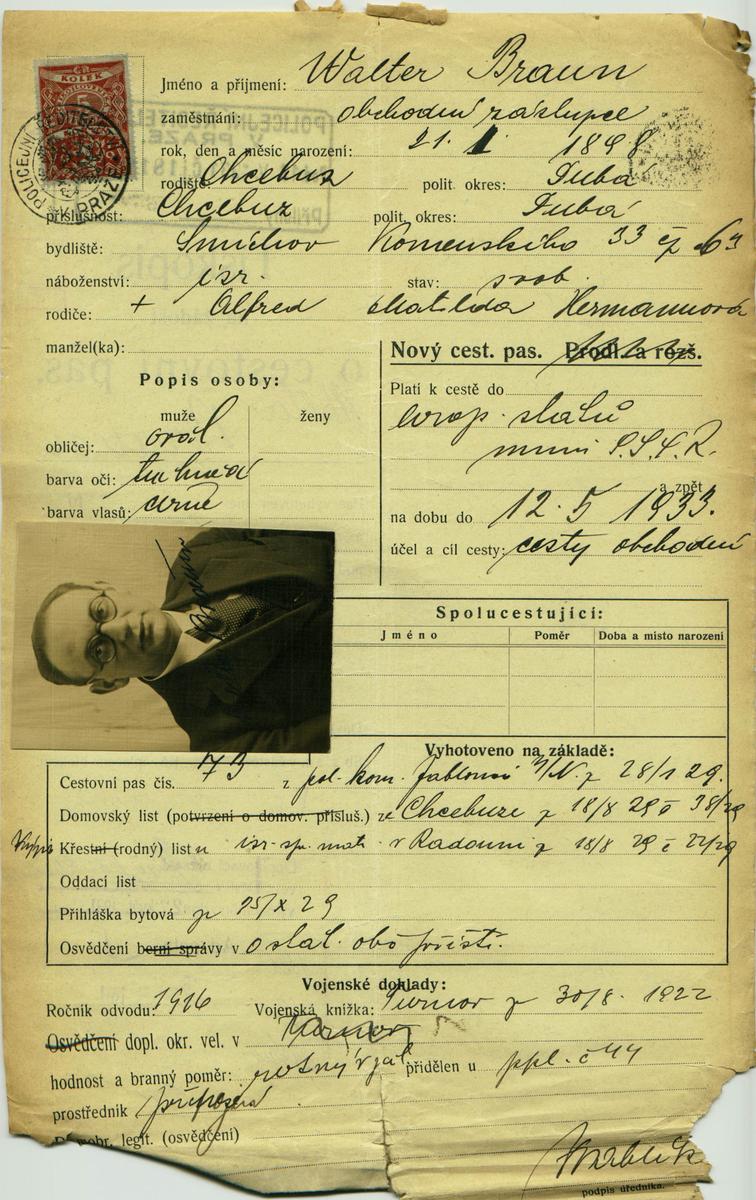 ČR KOLEK
POLICEJNÍ ŘEDITELSTVÍ V PRAZE
Jméno a příjmení: Walter Braun
zaměstnání: obchodní zástupce
rok, den a měsíc narození: 21. 1. 1898
rodiště: Chcebuz polit. okres: Dubá
příslušnost: Chcebuz polit. okres: Dubá
bydliště: Smíchov Komenského 33 čp 63
náboženství: isr. stav: svob.
rodiče: + Alfred Matilda Hermannová
manžel(ka):
Popis osoby:
muže ženy
obličej: ovál.
barva očí: tm hnědá
barva vlasů: černé
Nový cest. pas. Prodl. a rozš.
Platí k cestě do
evrop. států
mimo S.S.S.R.
a zpět
na dobu do 12. 5 1933.
účel a cíl cesty: cesty obchodní
Spolucestující:
Jméno Poměr Doba a místo narození
Vyhotoveno na základě:
Cestovní pas čís. 73 z pol. kom. Jablonci n/N. z 28/1 29.
Domovský list (potvrzení o domov. přísluš.) ze Chcebuze z 18/8 29 č 38/29
Výpis Křestní (rodný) list u isr. sp. mat. v Radouni z 18/8 29 č 22/29
Oddací list
Přihláška bytová z 15/X 29
Osvědčení berní správy v ostat. obč
Vojenské doklady:
Ročník odvodu: 1916 Vojenská knížka: z 30/8. 1922
Osvědčení dopl. okr. vel. v
hodnost a branný poměr: rotný v zál přidělen u ppl. č 44
prostředník
legit. (osvědčení)
podpis úředníka.